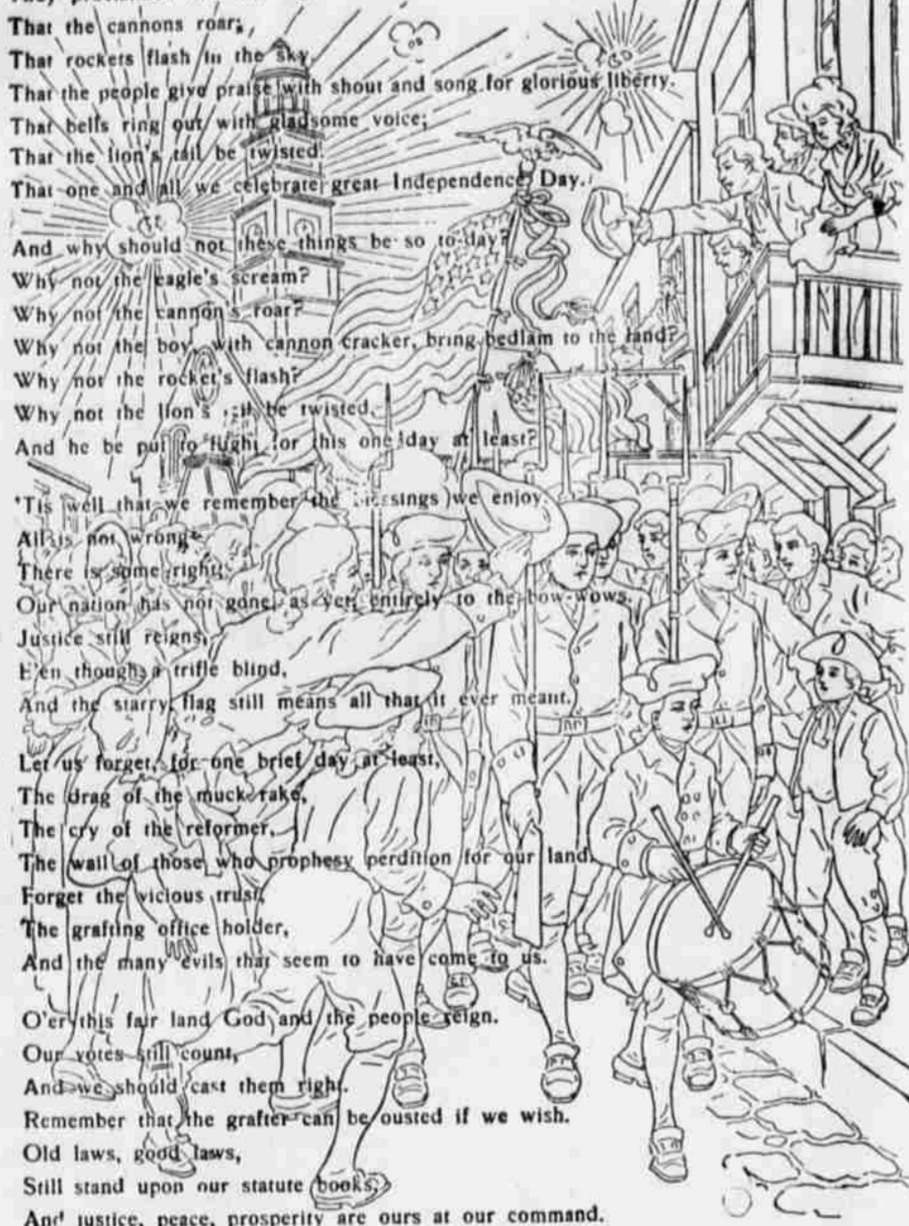 That the cannons roar;
That rockets flash in the sky,
That the people give praise with shout and song for glorious liberty.
That bells ring out with gladsome voice;
That the lion's tail be twisted.
That one and all we celebrate great Independence Day.
And why should not these things be so to-day?
Why not the eagle's scream?
Why not the cannon's roar?
Why not the boy, with cannon cracker, bring bedlam to the land?
Why not the rocket's flash?
Why not the lion's be twisted,
And he be put to flight for this one day at least?
'Tis well that we remember the blessings we enjoy.
All is not wrong.
There is some right;
Our nation has not gone, as yet, entirely to the bow-wows.
Justice still reigns,
E'en though a trifle blind,
And the starry flag still means all that it ever meant.
Let us forget, for one brief day at least,
The drag of the muck rake,
The cry of the reformer,
The wail of those who prophesy perdition for our land.
Forget the vicious trust,
The grafting office holder,
And the many evils that seem to have come to us.
O'er this fair land God and the people reign.
Our votes still count,
And we should cast them right.
Remember that the grafter can be ousted if we wish.
Old laws, good laws,
Still stand upon our statute books,
And justice, peace, prosperity are ours at our command.